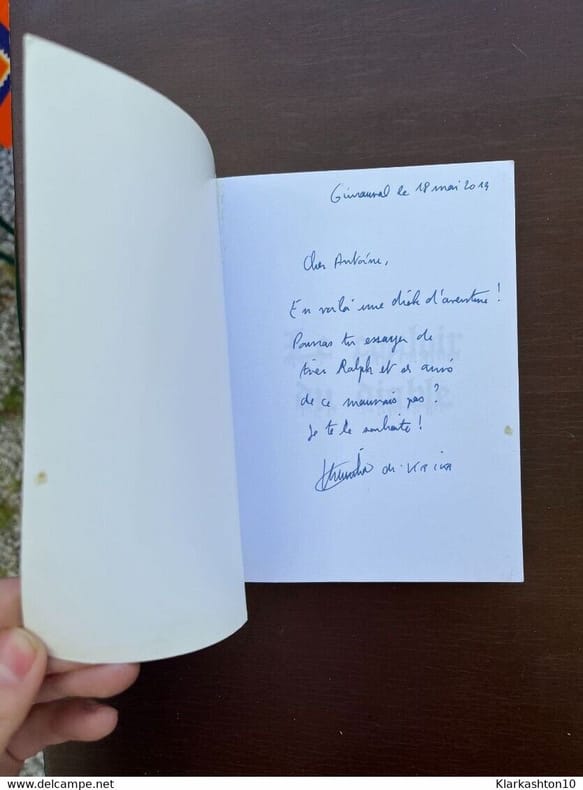 le 18 mai 2019
Cher Antoine,
En voilà une drôle d'aventure !
Pourras tu essayer de
tirer Ralph et ses amis
de ce mauvais pas ?
Je te le souhaite !
www.delcampe.net
Klarkashton10